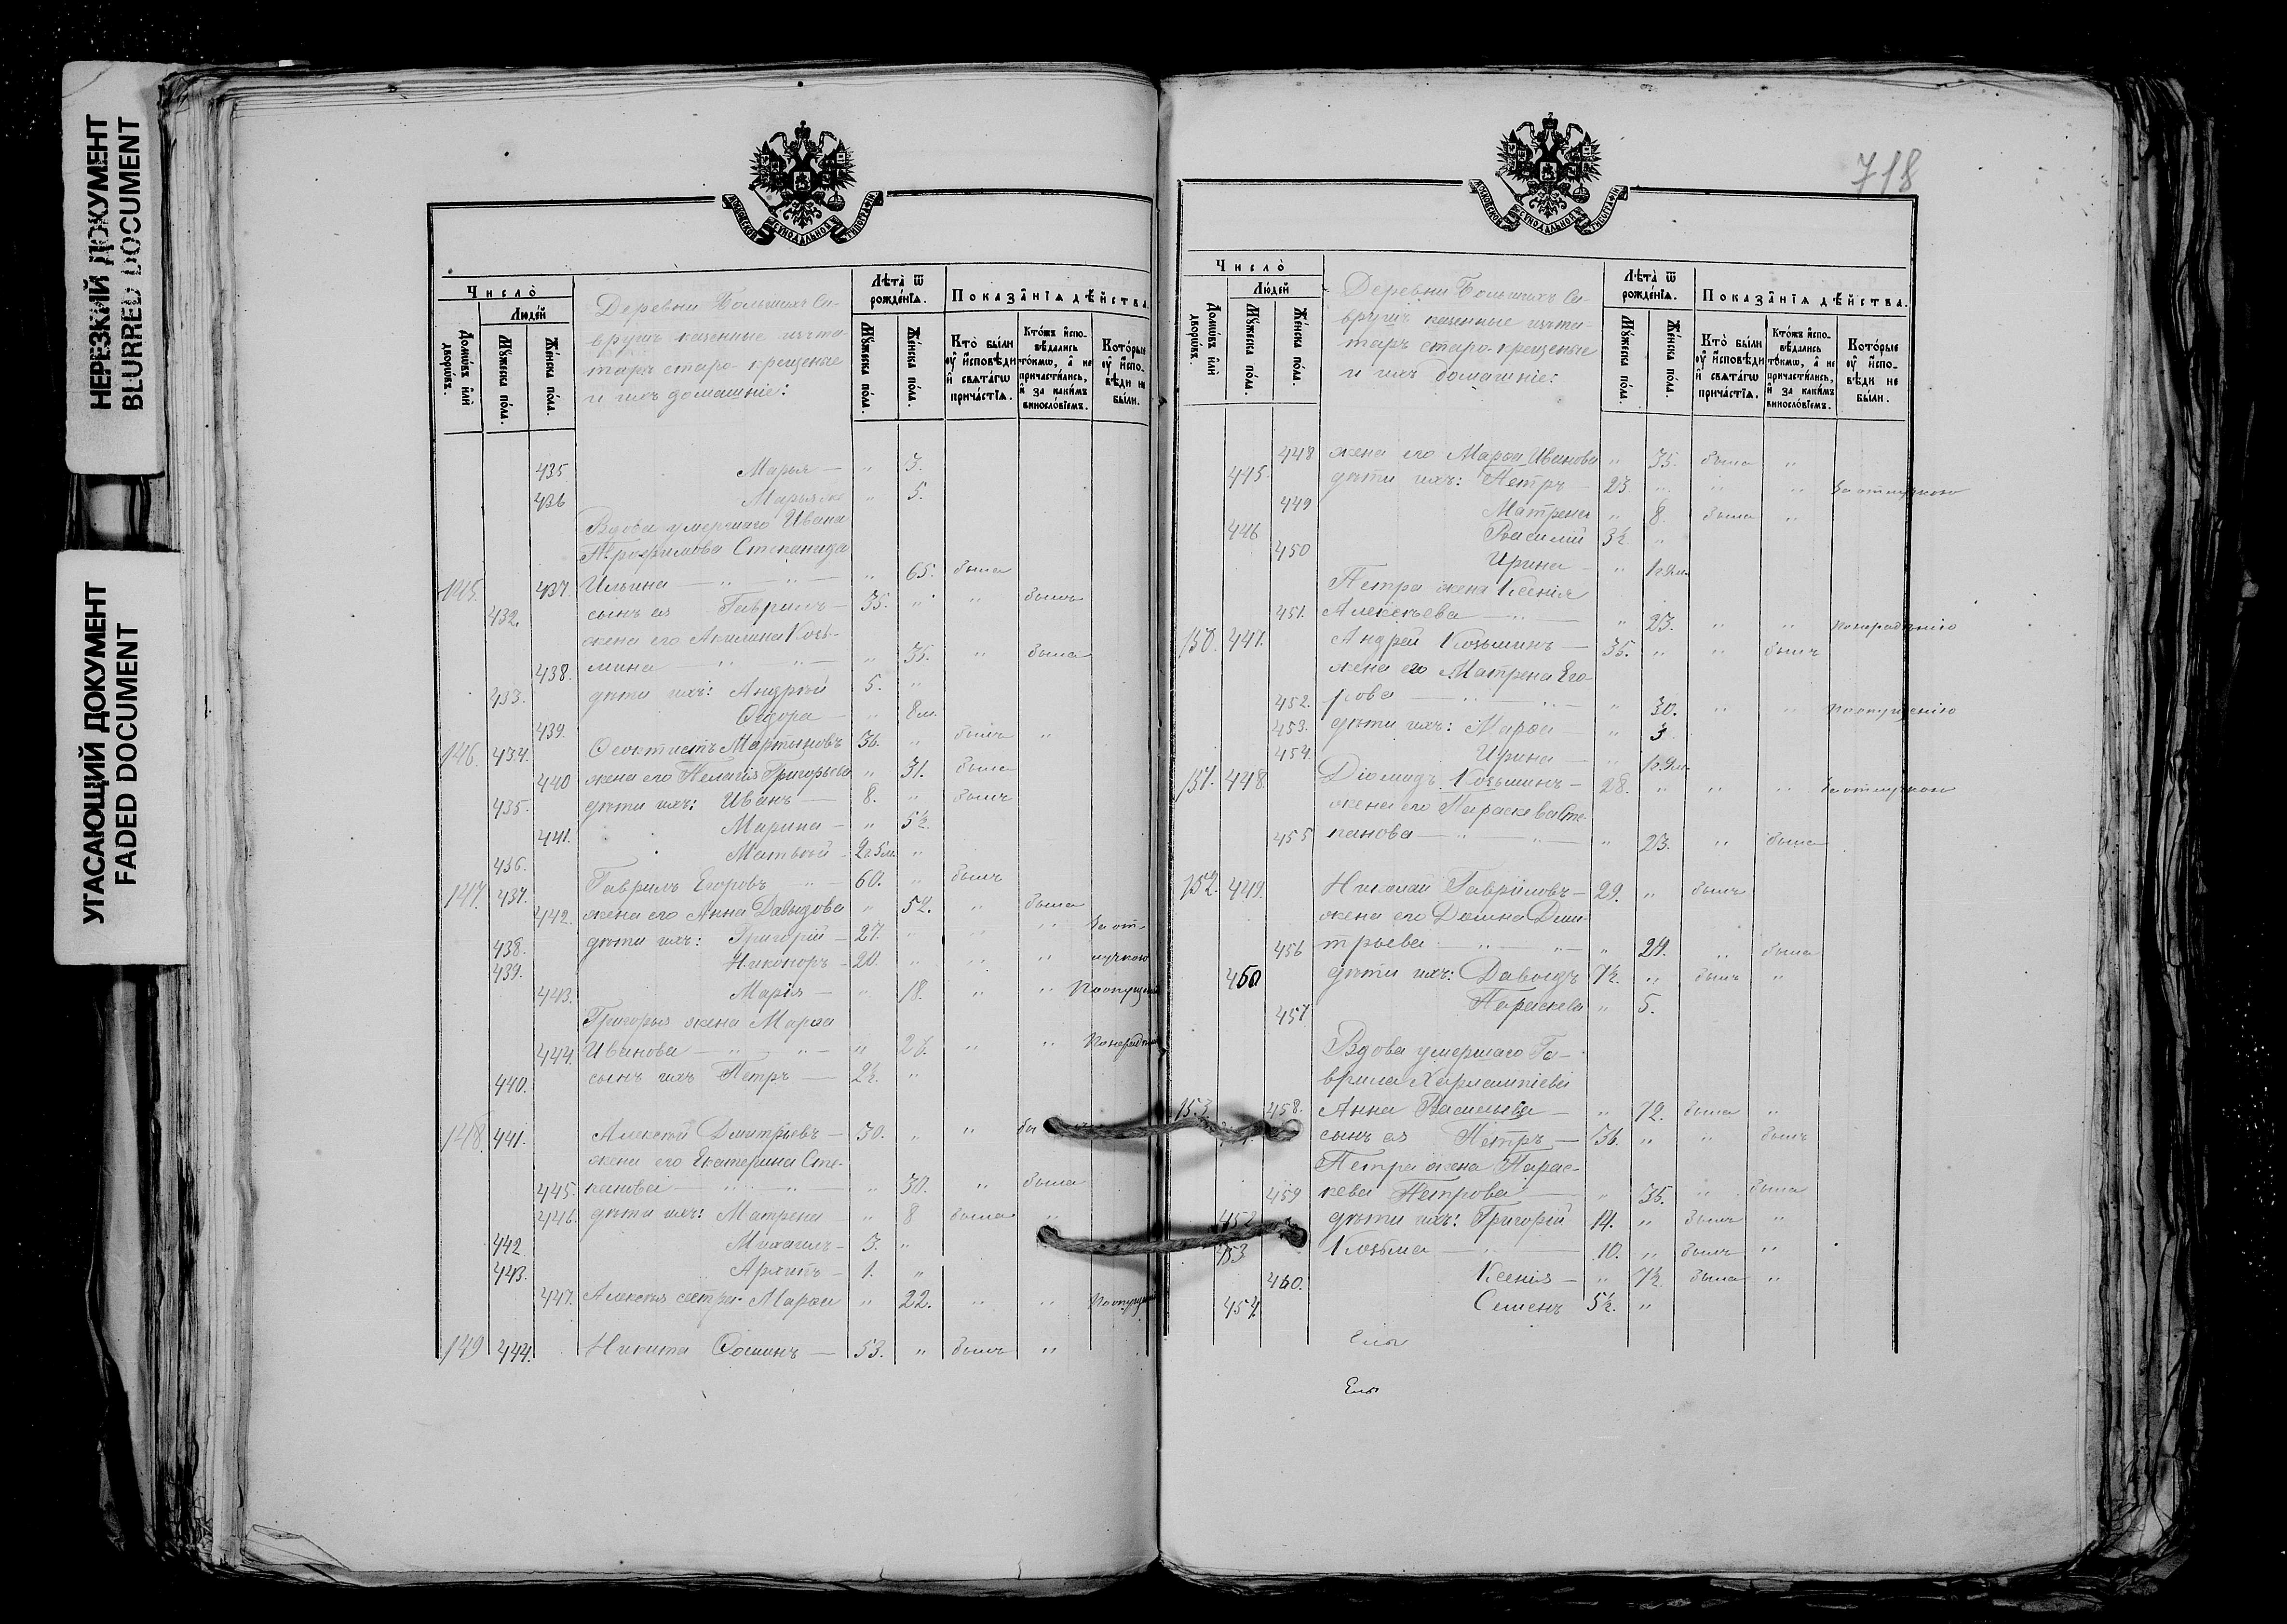 НЕРЕЗКИЙ ДОКУМЕНТ
BLURRED DOCUMENT
УГАСАЮЩИЙ ДОКУМЕНТ
FADED DOCUMENT
МОСКОВСКОЙ СѴНОДАЛЬНОЙ ТИПОГРАФІИ
Число̀
Люде́й
Домѡ́въ и҆лѝ дворѡ́въ.
Мꙋ́жеска по́ла.
Же́нска по́ла.
Деревни Большихъ Са-
врушъ казенные изъ та-
таръ старо-крещеные
и ихъ домашніе:
Лѣ̑та ѿ рожде́нїѧ.
Мꙋ́жеска по́ла.
Же́нска по́ла.
Показа́нїѧ дѣ́йства.
Кто̀ бы́ли оу҆ и҆́сповѣди и҆ свѧта́гѡ прича́стїѧ.
Кто́жъ и҆спо-вѣ́дались то́кмѡ, а҆ не причасти́лись, и҆ за каки́мъ виносло́вїемъ.
Кото́рые оу҆ и҆спо-вѣди не бы́ли.
435 Марья — " 7.
436 Марья же " 5.
Вдова умершаго Ивана
Трофимова Степанида
145. 437. Ильина — " — " — " 65. была
432. сынъ ея Гавриилъ — 35. " " былъ
жена его Акилина Козь-
438. мина — " " — " 35. " была
433. дѣти ихъ: Андрей 5. "
439. Ѳедора — " 8 м.
146. 434. Ѳеоктистъ Мартиновъ 36. " былъ "
440 жена его Пелагія Григорьева " 31. была
435. дѣти ихъ: Иванъ — 8. " былъ
441. Марина — " 5½.
436. Матвѣй — 2 г. 5 м. "
147. 437. Гавриилъ Егоровъ " — 60. " былъ
442. жена его Анна Давыдова " 52. " была
438. дѣти ихъ: Григорій — 27. " " " За от-
439. Никоноръ — 20. " " " лучкою
443. Марія — " 18. " " По опущенію
Григорья жена Марѳа
444. Иванова — " " — " 26. " " По нерадѣнію
440. сынъ ихъ Петръ — 2½. "
148. 441. Алексѣй Дмитріевъ — 30. " "
жена его Екатерина Сте-
445. панова — " — " — " 30. " была
446. дѣти ихъ: Матрена — " 8 была "
442 Михаилъ — 3. "
443. Архипъ — 1. "
447. Алексѣя сестра Марѳа " 22. " " По опущенію
149 444. Никита Ѳоминъ — 53. " былъ "
718
МОСКОВСКОЙ СѴНОДАЛЬНОЙ ТИПОГРАФІИ
Число̀
Люде́й
Домѡ́въ и҆лѝ дворѡ́въ.
Мꙋ́жеска по́ла.
Же́нска по́ла.
Деревни Большихъ Са-
врушъ казенные изъ та-
таръ старо-крещеные
и ихъ домашніе:
Лѣ̑та ѿ рожде́нїѧ.
Мꙋ́жеска по́ла.
Же́нска по́ла.
Показа́нїѧ дѣ́йства.
Кто̀ бы́ли оу҆ и҆́сповѣди и҆ свѧта́гѡ прича́стїѧ.
Кто́жъ и҆спо-вѣ́дались то́кмѡ, а҆ не причасти́лись, и҆ за каки́мъ виносло́вїемъ.
Кото́рые оу҆ и҆спо-вѣди не бы́ли.
448 жена его Марѳа Иванова " 35. была "
445. дѣти ихъ: Петръ — 23 " " " За отлучкою
449 Матрена " 8. была "
446 Василій 3½ "
450 Ирина — "
Петра жена Ксенія
451. Алексѣева — " — " 23. " " По нерадѣнію
150. 447. Андрей Козьминъ — 35. " " былъ
жена его Матрена Его-
452. рова — " " — " 30. " " По опущенію
453. дѣти ихъ: Марѳа — " 3
454. Ирина — "
151. 448. Діомидъ Козьминъ — 28. " " " За отлучкою
жена его Параскева Сте-
455 панова — " — " — " 23. " была
152. 449. Николай Гавриловъ — 29. " былъ
жена его Домна Дми-
456 тріева — " — " — " 29. " была
450 дѣти ихъ: Давыдъ 7½. " былъ "
457 Параскева " 5.
Вдова умершаго Га-
врила Харлампіева
153. 458. Анна Васильева — " 72. была "
сынъ ея Петръ — 36. " " былъ
Петра жена Парас-
459 кева Петрова — " 35. " была
452 дѣти ихъ: Григорій 14. " былъ "
453 Козьма — " — 10. " былъ "
460. Ксенія — " 7½. была "
454 Семенъ 5½. "